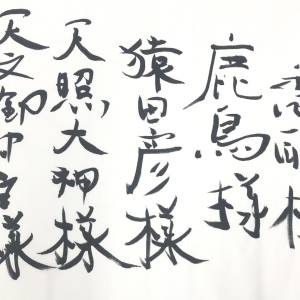 様
鹿島様
猿田彦様
天照大神様
天之御中主様